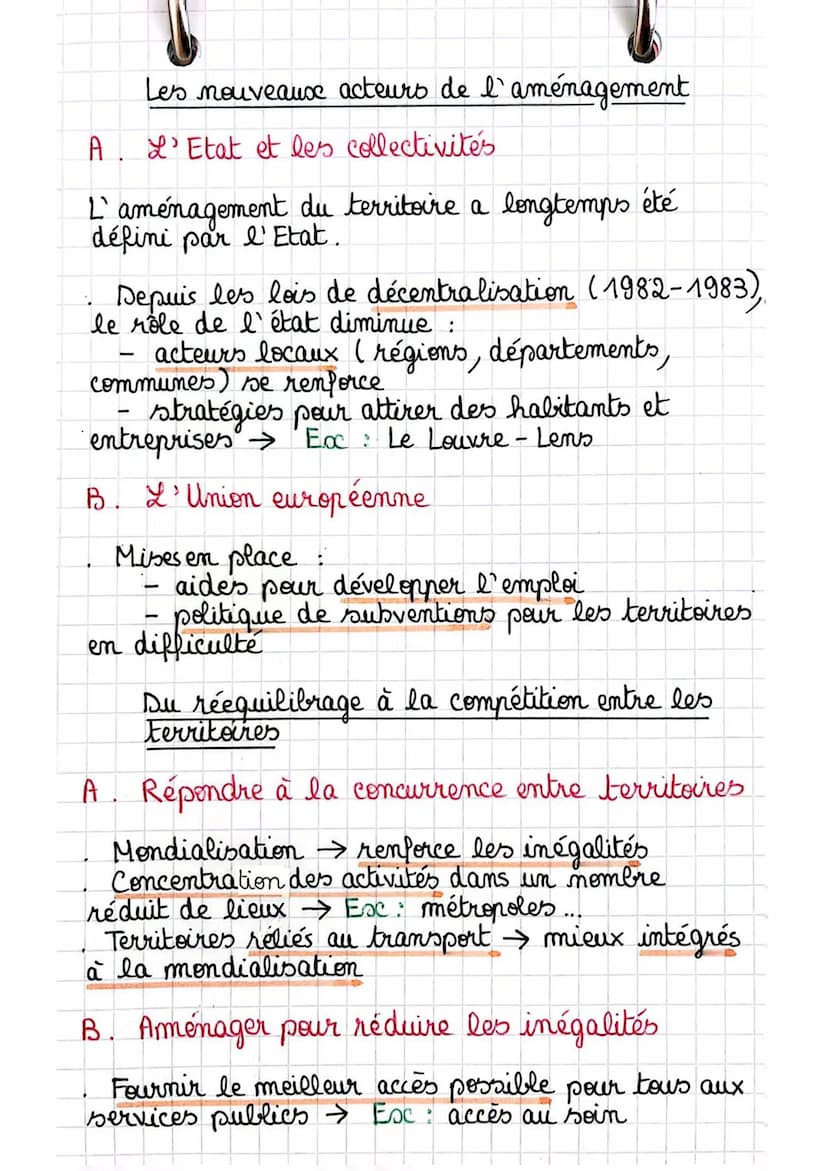 Les nouveaux acteurs de l'aménagement
A. L'Etat et les collectivités
L'aménagement du territoire a longtemps été
défini par l'Etat.
. Depuis les lois de décentralisation (1982-1983),
le rôle de l'état diminue :
- acteurs locaux (régions, départements,
communes) se renforce
- stratégies pour attirer des habitants et
entreprises → Ex : Le Louvre-Lens
B. L'Union européenne
. Mises en place :
- aides pour développer l'emploi
- politique de subventions pour les territoires
en difficulté
Du réequilibrage à la compétition entre les
territoires
A. Répondre à la concurrence entre territoires
. Mondialisation → renforce les inégalités
. Concentration des activités dans un nombre
réduit de lieux → Ex : métropoles...
. Territoires réliés au transport → mieux intégrés
à la mondialisation
B. Aménager pour réduire les inégalités
. Fournir le meilleur accès possible pour tous aux
services publics → Ex : accès au soin